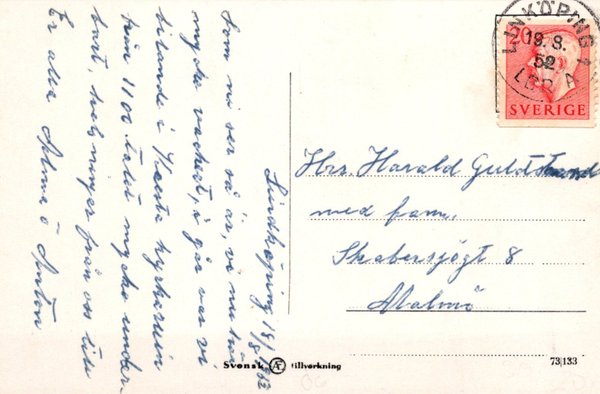 Lindköping 18/8 1952
Som ni ser så är, vi nu två
mycke vackert, i går var vi
bilande i Vreta kyrkoruin
från 1100 talet mycke under-
bart, helsningar från oss till
Er alla Selma o Anton
LINKÖPING 1
19. 8.
52
LBR A
20
SVERIGE
Hrr. Harald Guldstrand
med fam.
Skabersjögt 8
Malmö
Svensk Æ tillverkning
73/133